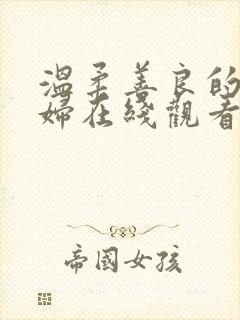 溫柔善良的
婦在綫觀看
帝國女孩